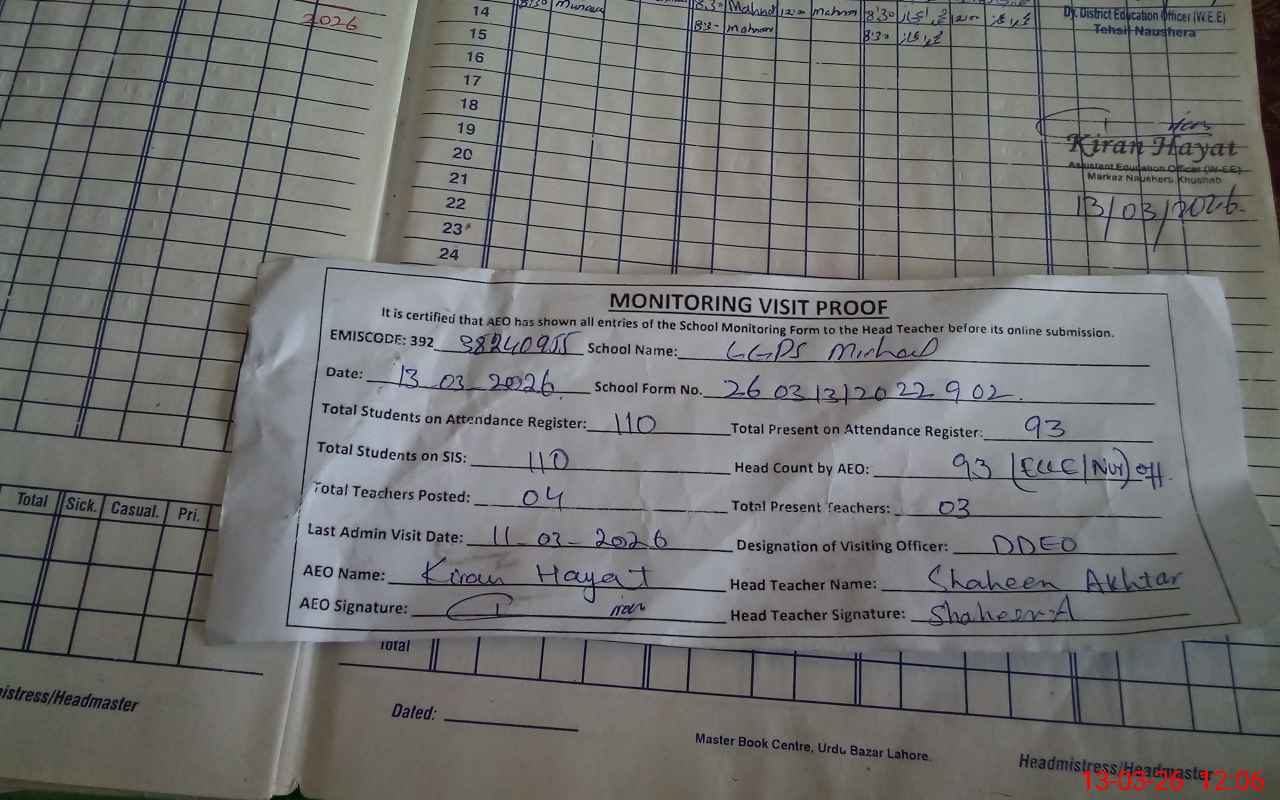 2026
14 8:30 8:30 Mahnoor 12:00 mahnoor 8:30
15 8:30 mahnoor 8:30
16
17
18
19
20
21
22
23
24
Dy. District Education Officer (W.E.E)
Tehsil Naushera
Kiran Hayat
Assistant Education Officer (W-EE)
Markaz Naushera Khushab
13/03/2026
MONITORING VISIT PROOF
It is certified that AEO has shown all entries of the School Monitoring Form to the Head Teacher before its online submission.
EMISCODE: 392 38240955 School Name: GGPS
Date: 13-03-2026 School Form No. 26 03 13 20 22 9 02
Total Students on Attendance Register: 110 Total Present on Attendance Register: 93
Total Students on SIS: 110 Head Count by AEO: 93 (ECCE/Nur) off
Total Teachers Posted: 04 Total Present Teachers: 03
Last Admin Visit Date: 11-03-2026 Designation of Visiting Officer: DDEO
AEO Name: Kiran Hayat Head Teacher Name: Shaheen Akhtar
AEO Signature: Head Teacher Signature: Shaheen A
Total Sick. Casual. Pri.
Total
Headmistress/Headmaster
Dated:
Master Book Centre, Urdu Bazar Lahore.
Headmistress/Headmaster
13-03-26 12:06